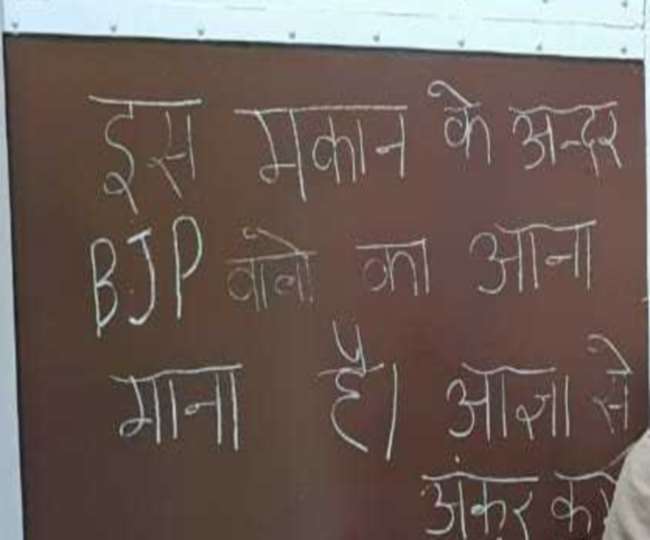 इस मकान के अन्दर
BJP वालो का आना
माना है। आज्ञा से
अंकुर